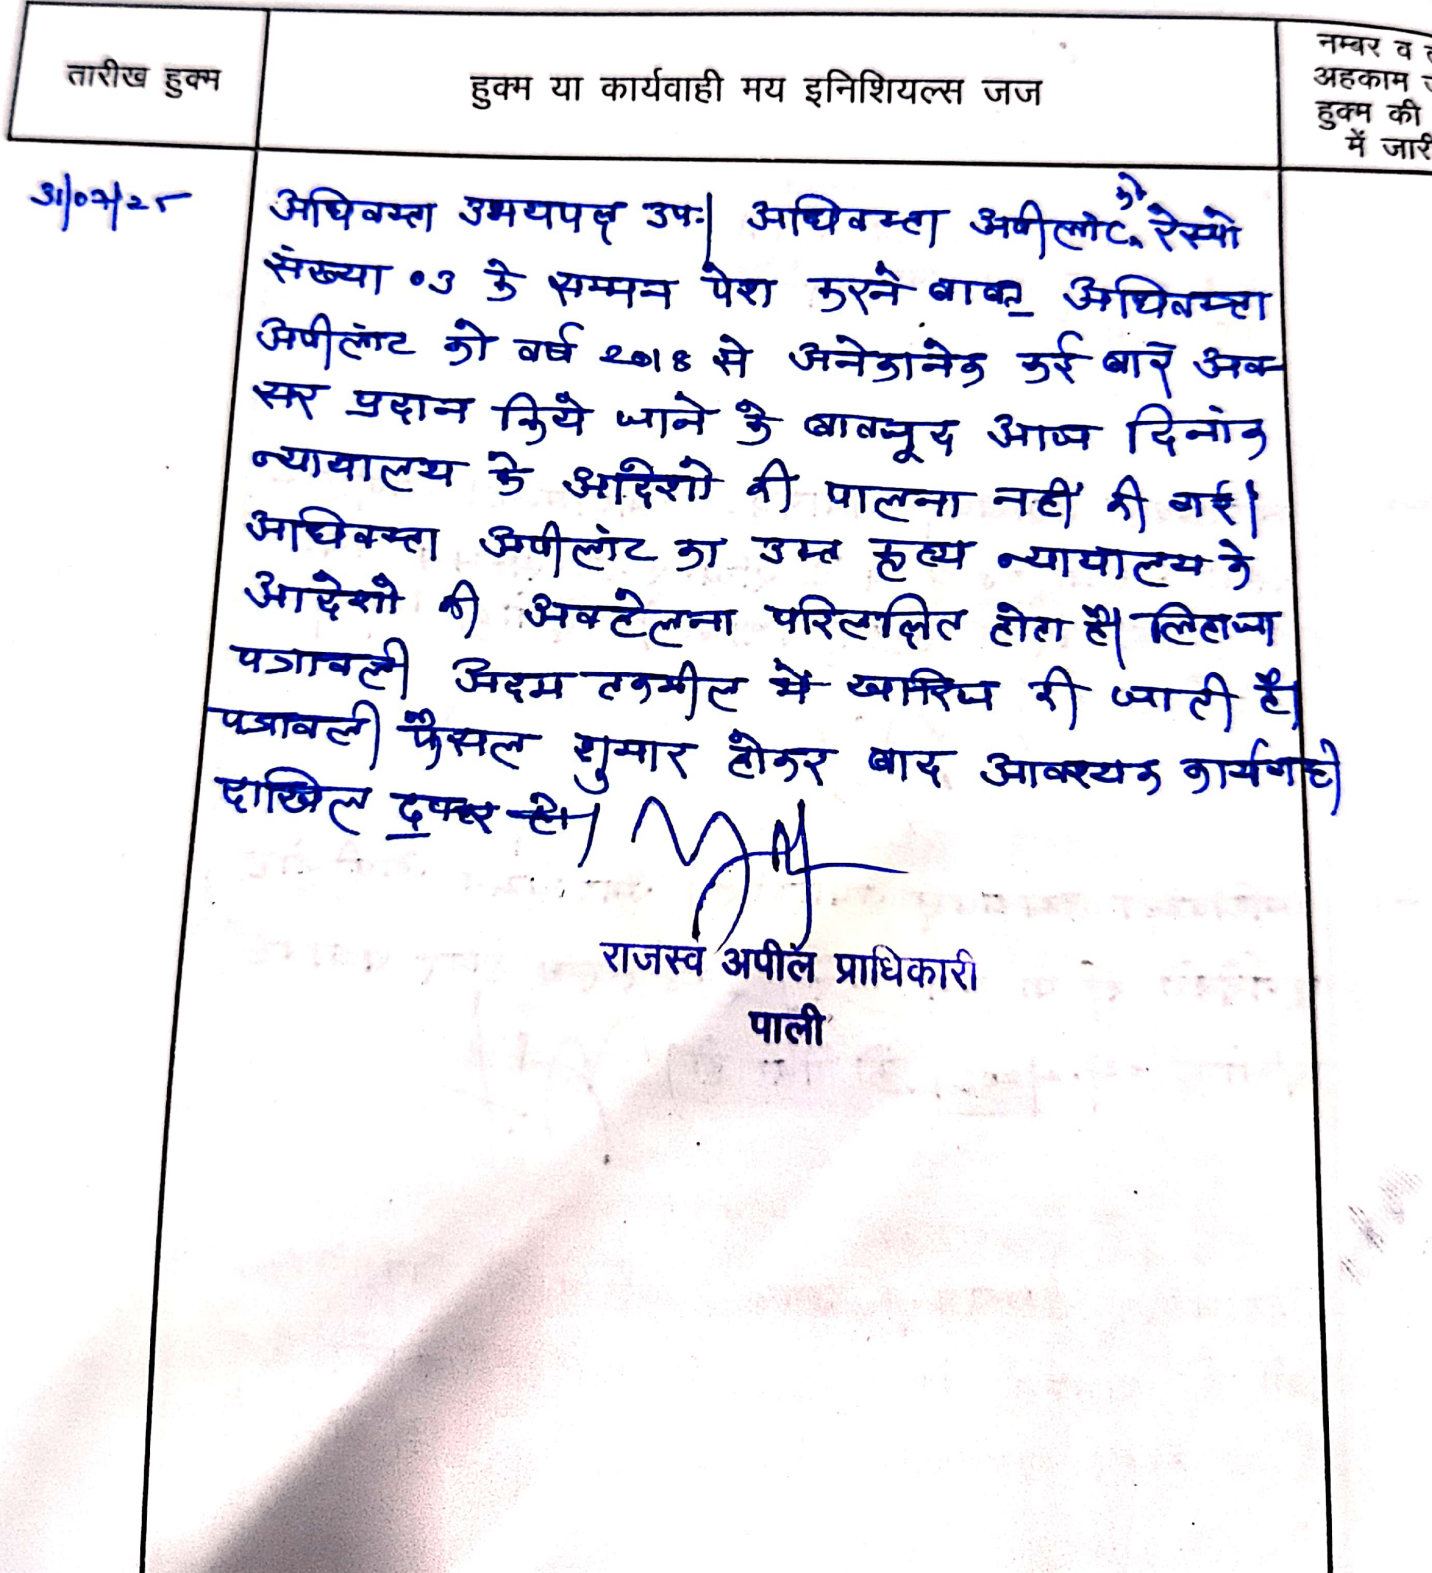 तारीख हुक्म
हुक्म या कार्यवाही मय इनिशियल्स जज
नम्बर व
अहकाम
हुक्म की
में जारी
31/07/25
अधिवक्ता उभयपक्ष उप.। अधिवक्ता अपीलांट को रेस्पो
संख्या 03 के सम्मन पेश करने बाबत् अधिवक्ता
अपीलांट को वर्ष 2018 से अनेकानेक कई बार अव-
सर प्रदान किये जाने के बावजूद आज दिनांक
न्यायालय के आदेशो की पालना नहीं की गई।
अधिवक्ता अपीलांट का उक्त कृत्य न्यायालय के
आदेशो की अवहेलना परिलक्षित होता है। लिहाजा
पत्रावली अदम तकमील में खारिज की जाती है।
पत्रावली फैसल शुमार होकर बाद आवश्यक कार्यवाही
दाखिल दफ्तर हो।
राजस्व अपील प्राधिकारी
पाली